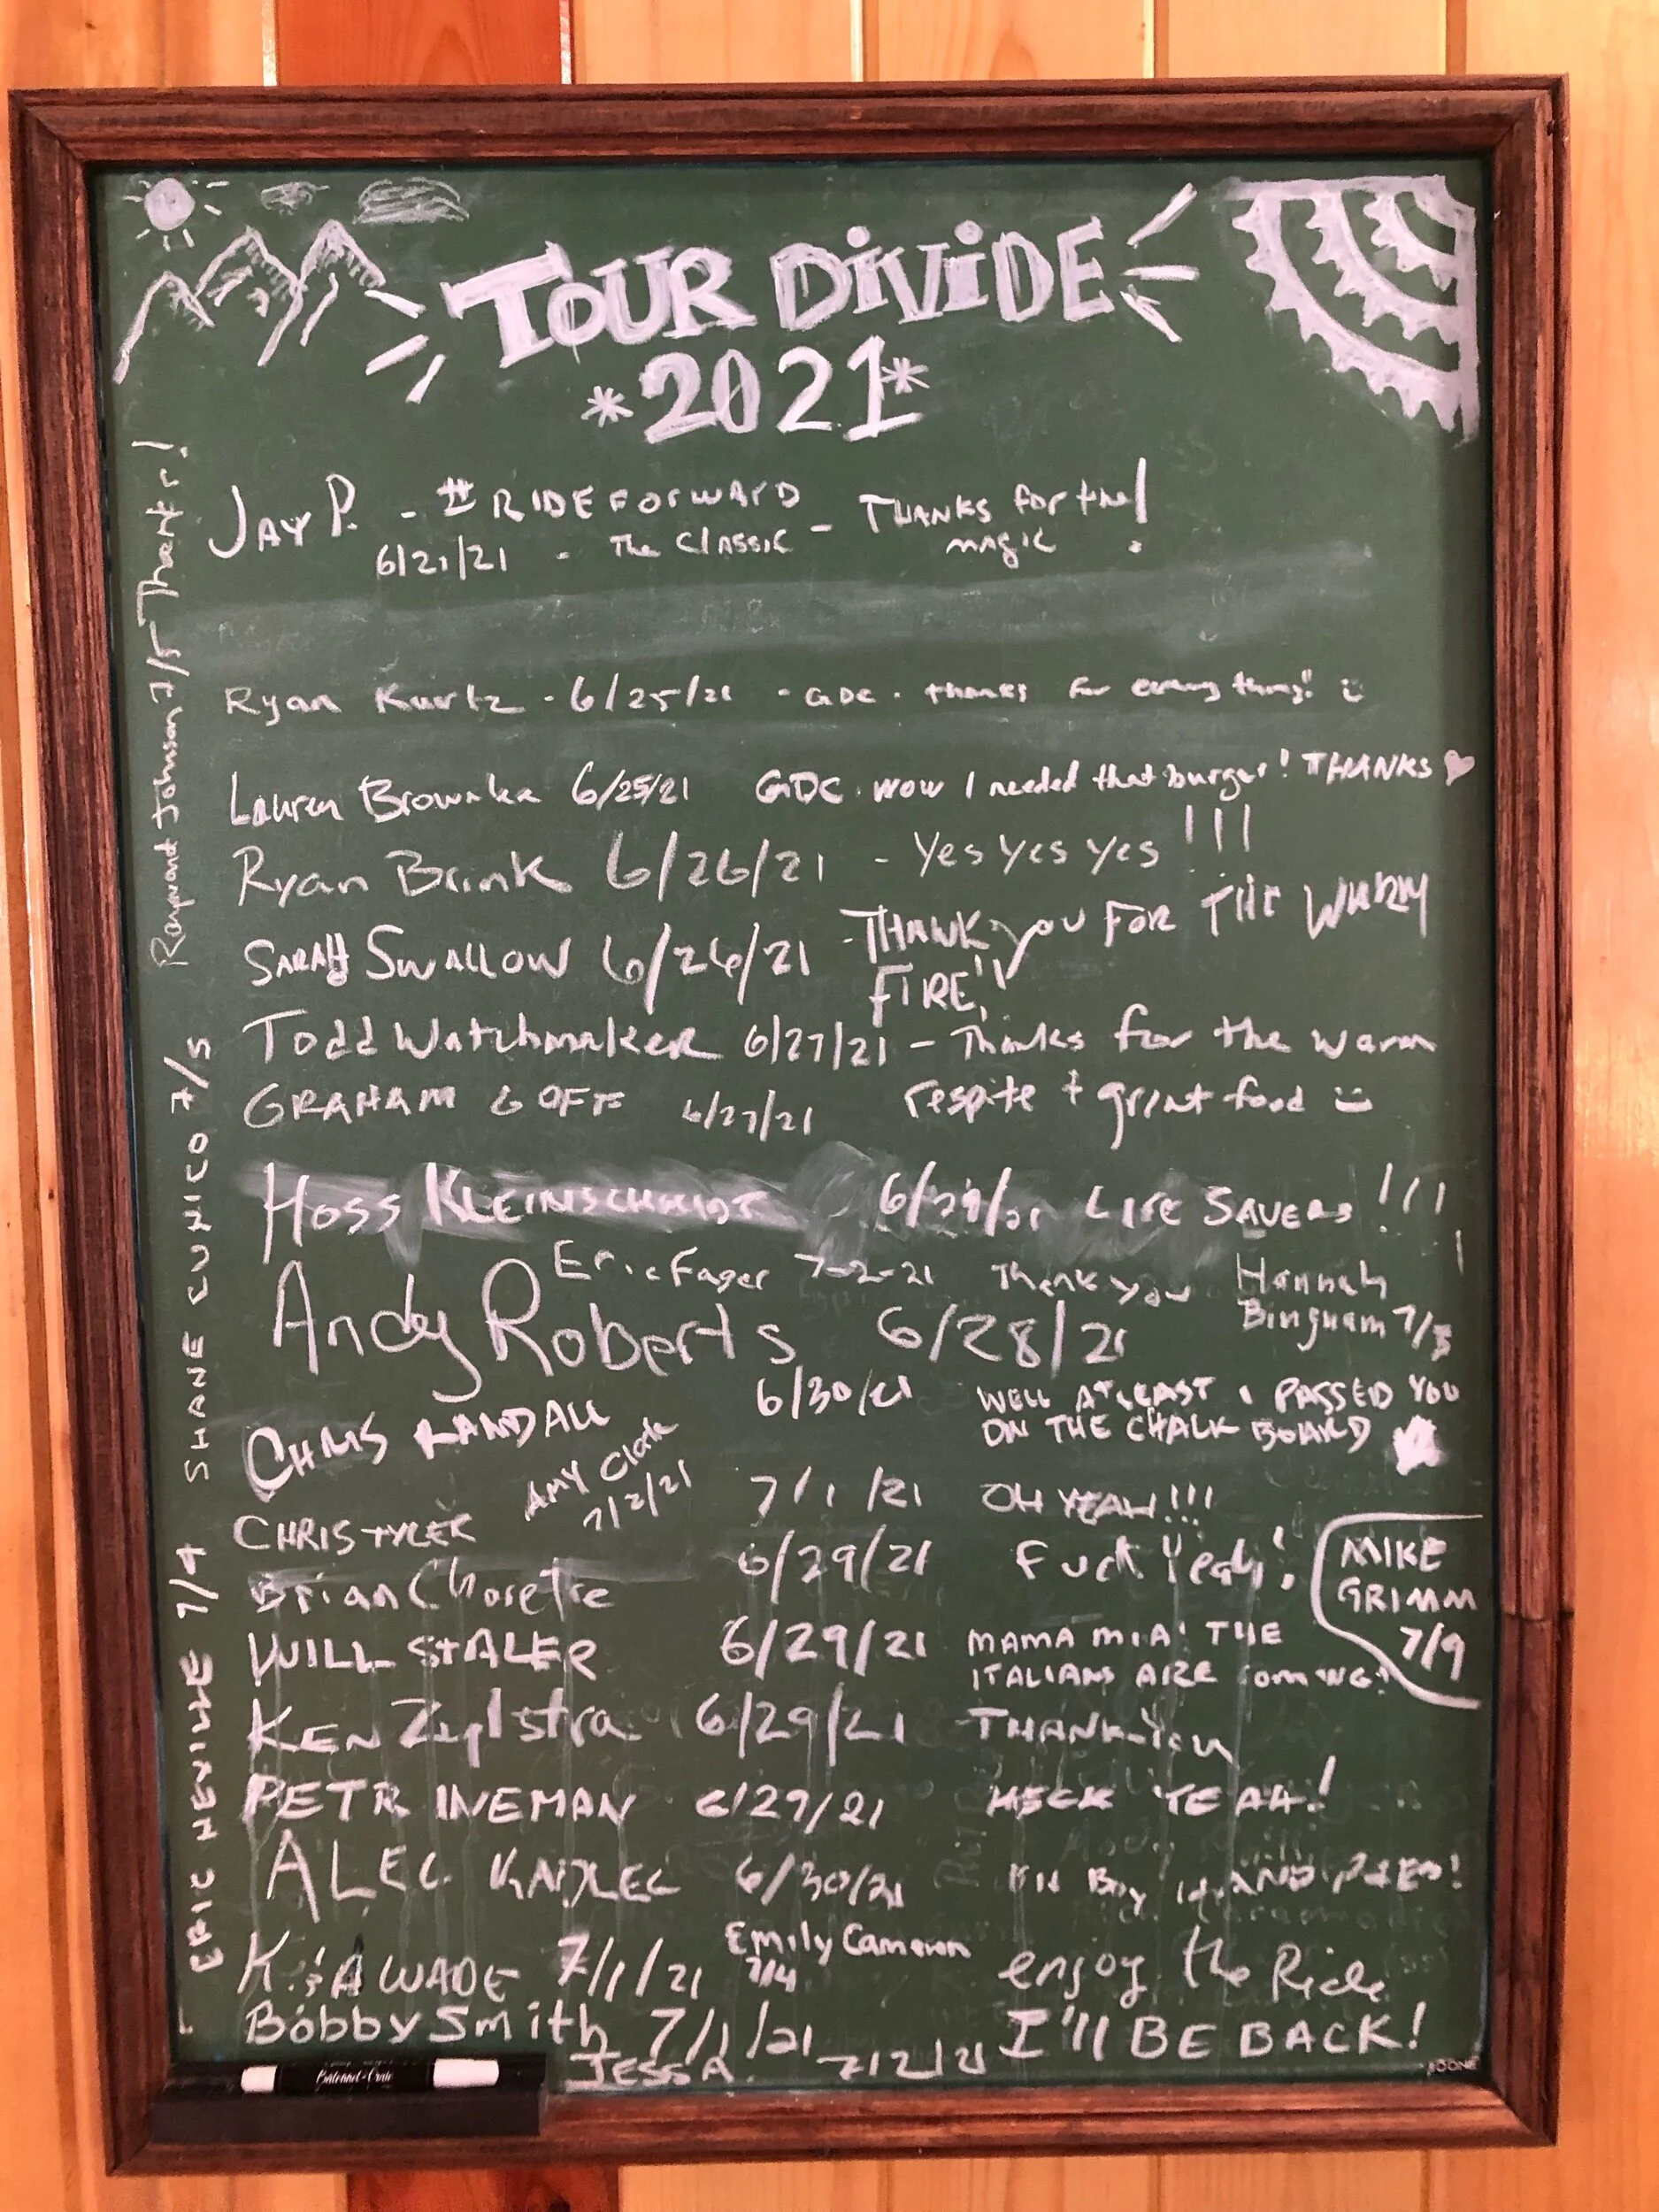 TOUR DIVIDE
*2021*
JAY P. - #RIDEFORWARD - THANKS for the
6/21/21 - The CLASSIC - magic!
Ryan Kurtz - 6/25/21 - GDC. thanks for everything!! :)
Lauren Brownka 6/25/21 GDC. wow I needed that burger! THANKS ♥
Ryan Brink 6/26/21 - Yes Yes Yes !!!
SARAH SWALLOW 6/26/21 - THANK YOU FOR THE WARM
FIRE!!
Todd Watchmaker 6/27/21 - Thanks for the warm
GRAHAM GOFF 6/27/21 respite + great food :)
HOSS KLEINSCHMIDT 6/29/21 LIFE SAVERS !!!!
Eric Fager 7-2-21 Thank you
Hannah
Bingham 7/3
Andy Roberts 6/28/21
CHRIS RANDALL 6/30/21 WELL AT LEAST I PASSED YOU
ON THE CHALK BOARD
AMY Clark
7/2/21
CHRIS TYLER 7/1/21 OH YEAH!!!
Brian Chorette 6/29/21 Fuck Yeah!
MIKE
GRIMM
7/9
WILL STALER 6/29/21 MAMA MIA! THE
ITALIANS ARE COMING!
KEN Zylstra 6/29/21 THANK YOU
PETR INEMAN 6/29/21 HECK YEAH!
ALEC 6/30/21
Emily Cameron
7/4
K.&A WADE 7/1/21 enjoy the Ride
Bobby Smith 7/1/21 I'll BE BACK!
JESS A. 7/2/21
ERIC NEVILLE 7/4 SHANE CUNICO 7/5
Raymond Johnson 7/5 Thanks!